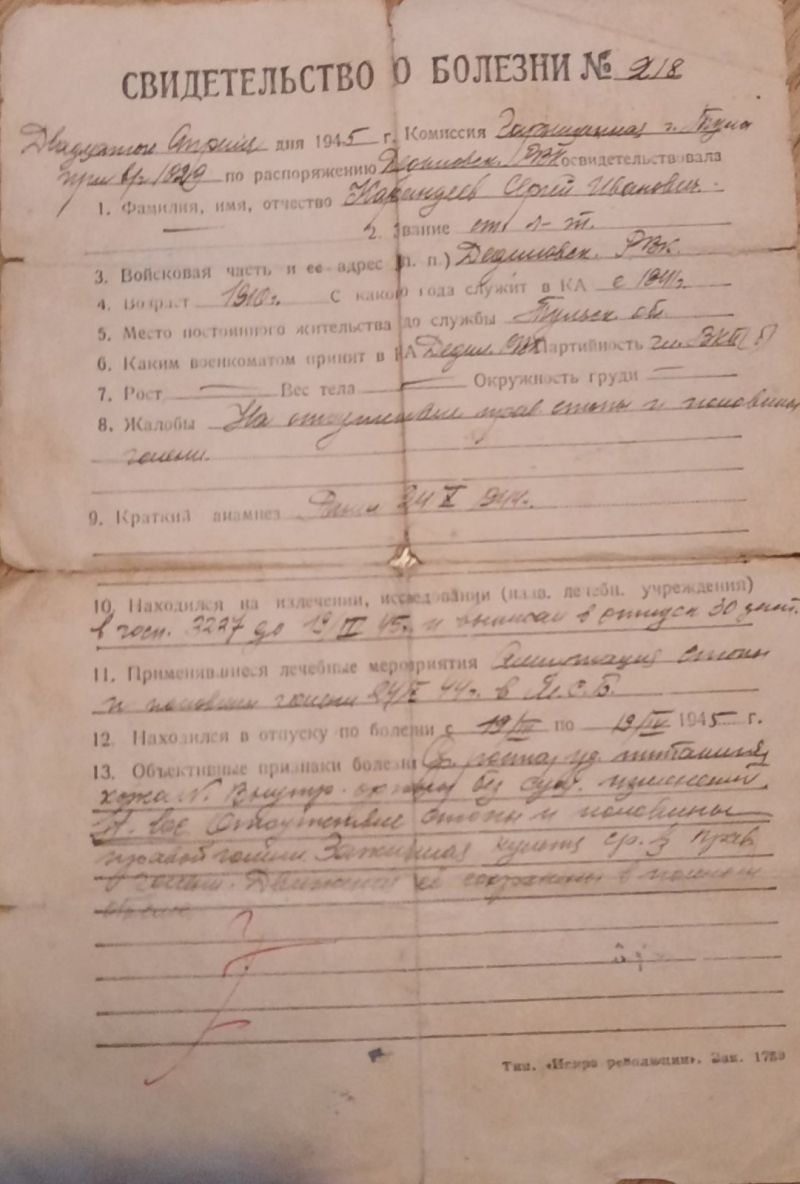 СВИДЕТЕЛЬСТВО О БОЛЕЗНИ № 218
Двадцатого Апреля дня 1945 г. Комиссия г. Тула
при по распоряжению РВК освидетельствовала
1. Фамилия, имя, отчество Сергей Иванович
2. Звание ст. л-т.
3. Войсковая часть и ее адрес (п. п.) Дедиловск. РВК.
4. Возраст 1910 г. С какого года служит в КА с 1941 г.
5. Место постоянного жительства до службы Тульск. об.
6. Каким военкоматом принят в КА Дедил. РВК Партийность чл. ВКП(б)
7. Рост — Вес тела — Окружность груди —
8. Жалобы На отсутствие прав стопы и половины
голени.
9. Краткий анамнез 24 X 1944 г.
10. Находился на излечении, исследовании (назв. лечебн. учреждения)
в госп. 3227 до 19/III 45 г. и выписан в отпуск 30 дней.
11. Применявшиеся лечебные мероприятия Ампутация стопы
и половины голени 44 г. в
12. Находился в отпуску по болезни с 19/III по 19/IV 1945 г.
13. Объективные признаки болезни роста, уд. питания,
кожа N. Внутр. органы без изменений.
Отсутствие стопы и половины
правой голени. Зажившая культя ср. ⅓ прав
голени. Движения её сохранены в полном
объеме.
Тип. «Искра революции». Зак. 1759